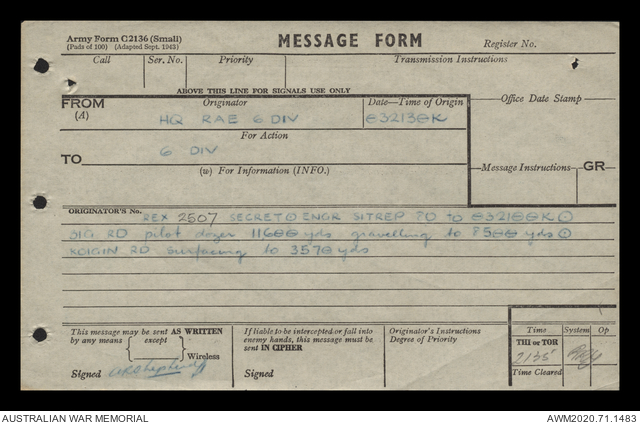 Army Form C2136 (Small)
(Pads of 100) (Adapted Sept. 1943)
MESSAGE FORM
Register No.
Call Ser. No. Priority Transmission Instructions
ABOVE THIS LINE FOR SIGNALS USE ONLY
FROM
(A)
Originator
Date—Time of Origin
Office Date Stamp
HQ RAE 6 DIV
032130K
For Action
TO
6 DIV
(w) For Information (INFO.)
Message Instructions
GR
ORIGINATOR'S No.
REX 2507 SECRET ⊙ ENGR SITREP 80 to 032100K ⊙
RD pilot dozer 11,600 yds gravelling to 8500 yds ⊙
RD surfacing to 3570 yds
This message may be sent AS WRITTEN
by any means except
Wireless
Signed
If liable to be intercepted or fall into
enemy hands, this message must be
sent IN CIPHER
Signed
Originator's Instructions
Degree of Priority
Time System Op
THI or TOR
2135
Time Cleared
AUSTRALIAN WAR MEMORIAL
AWM2020.71.1483